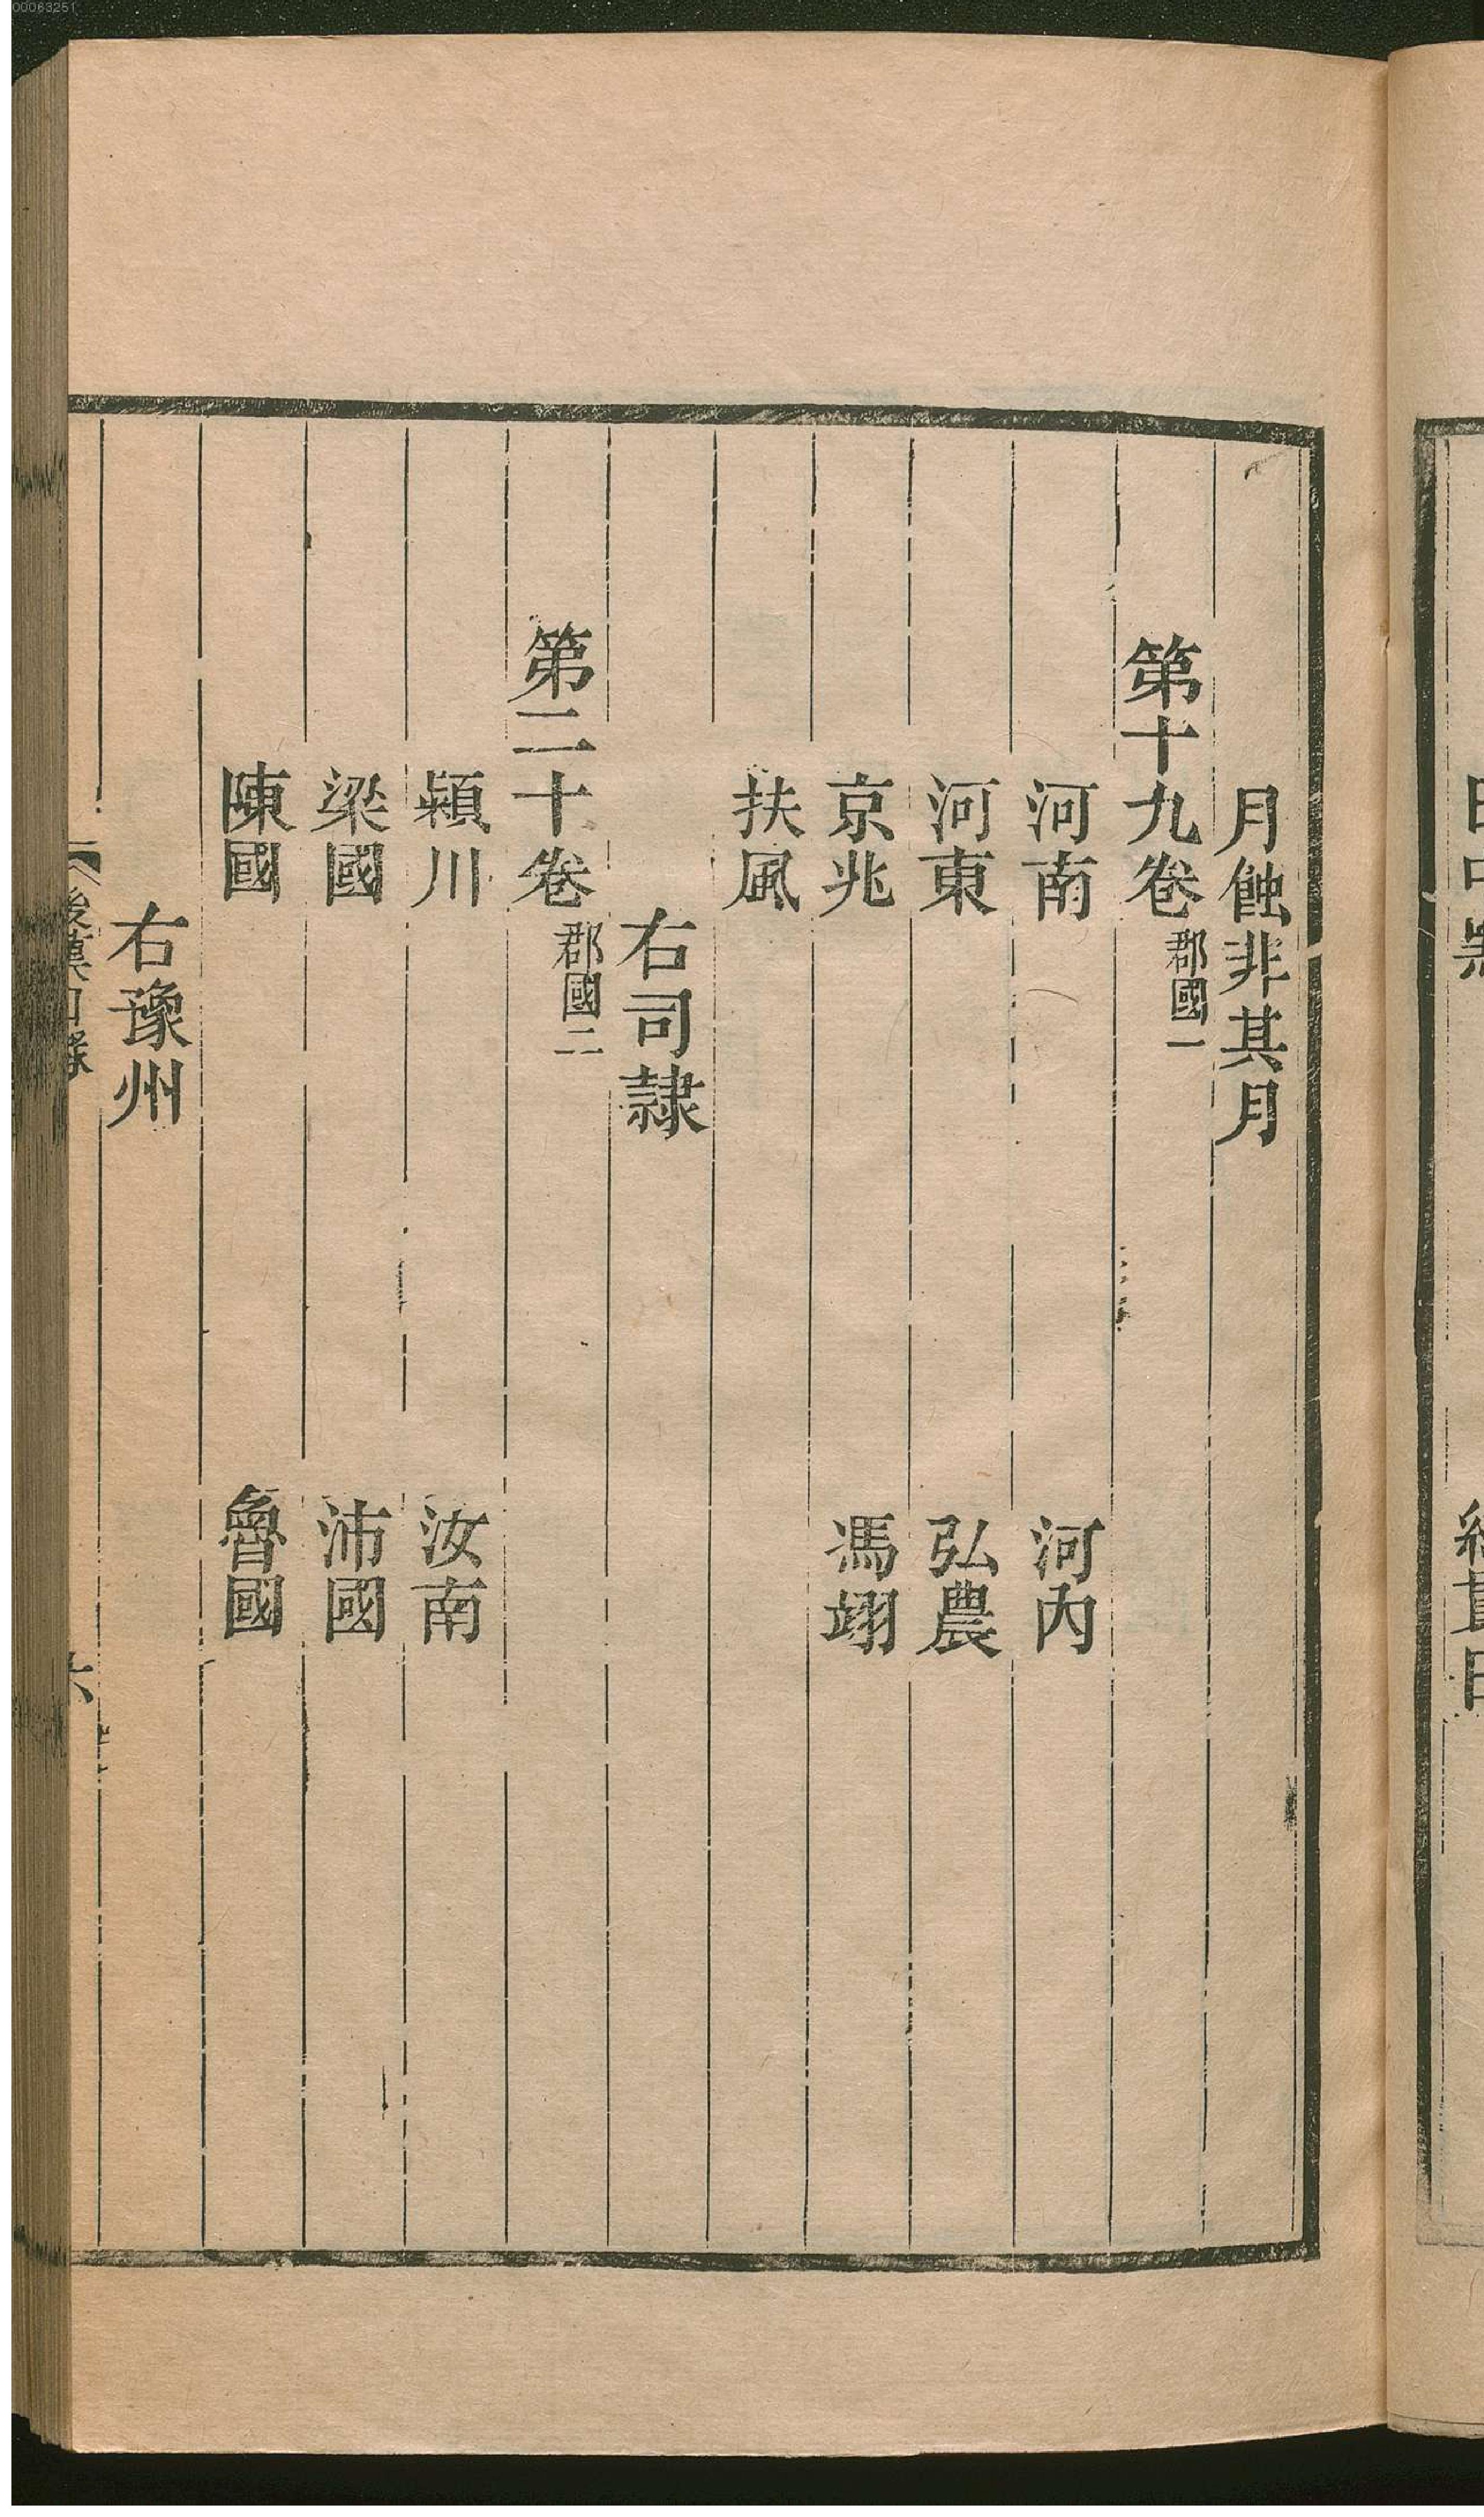 月蝕非其月
第十九卷 郡國一
河南 河內
河東 弘農
京兆 馮翊
扶風
右司隸
第二十卷 郡國二
潁川 汝南
梁國 沛國
陳國 魯國
右豫州
六
00063251